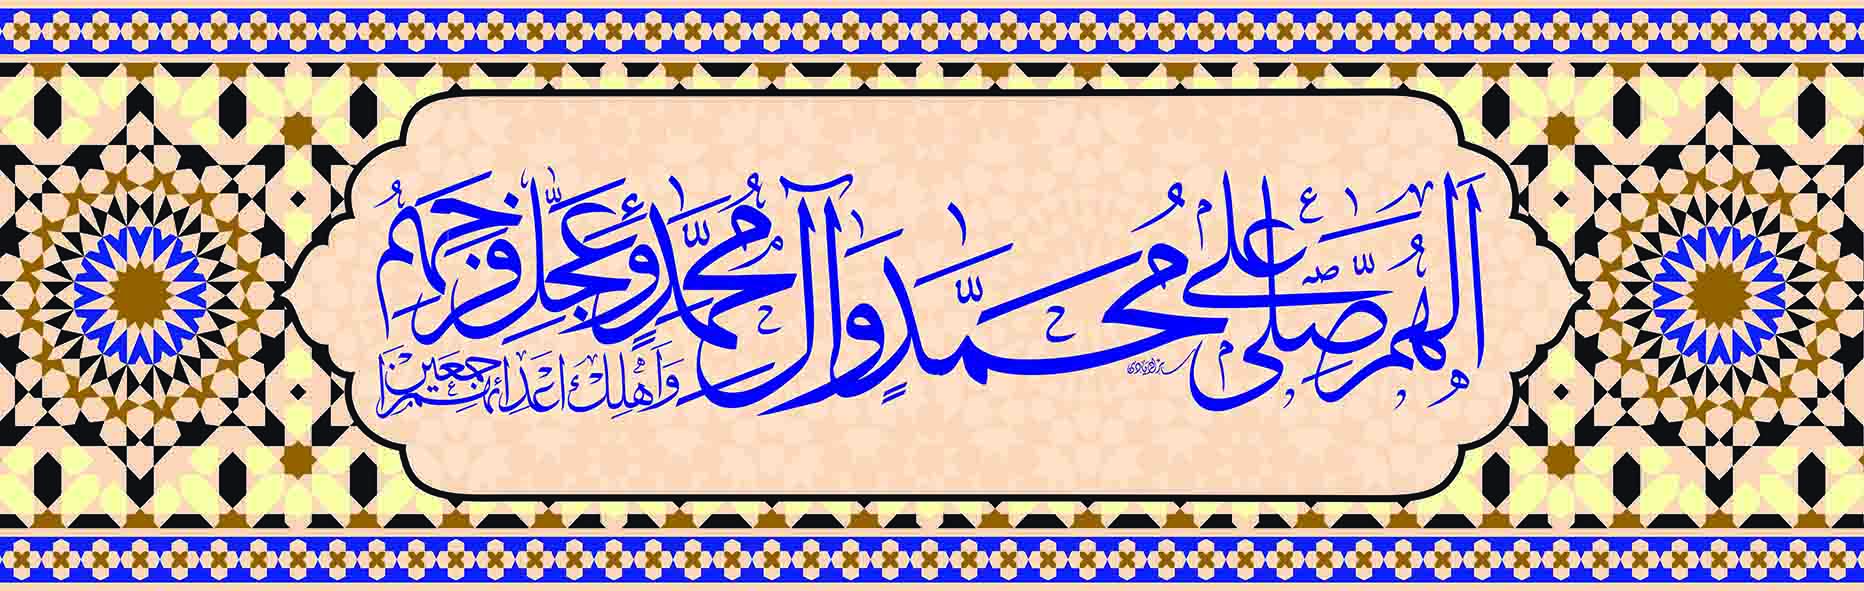 اَللّهُمَّ صَلِّ عَلى مُحَمَّدٍ وَآلِ مُحَمَّدٍ وَعَجِّلْ فَرَجَهُمْ
وَاَهْلِكْ اَعْدَائَهُمْ اَجْمَعِین